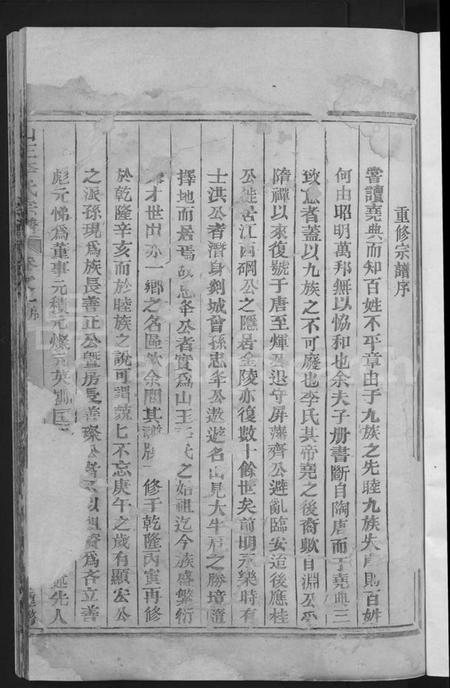 重修宗譜序
嘗讀堯典而知百姓不平章由于九族之先睦九族失則百姓
何由昭明萬邦無以恊和也余夫子册書斷自陶唐而于堯典三
致意者蓋以九族之不可廢也李氏其帝堯之後裔歟自淵公受
隋禪以來復號于唐至煇公退守屏藩齊公避亂臨安迨後應桂
公徙居江西硐公之隱居金陵亦復數十餘世矣前明永樂時有
士洪公者潛身剡城曾孫志年公遨遊名山見大牛眠之勝境遂
擇地而居焉故志年公者實為山王李氏之始祖迄今族盛繁衍
才世出亦一鄉之名區歟余閱其譜牒 修于乾隆丙寅再修
於乾隆辛亥而於睦族之說可謂諄匕不忘庚午之歲有顯宏公
之派孫現為族長善正公暨房長善琛公 以祖 為吝立善
彪元悌為董事元積元燦元英 述先人
李氏宗譜